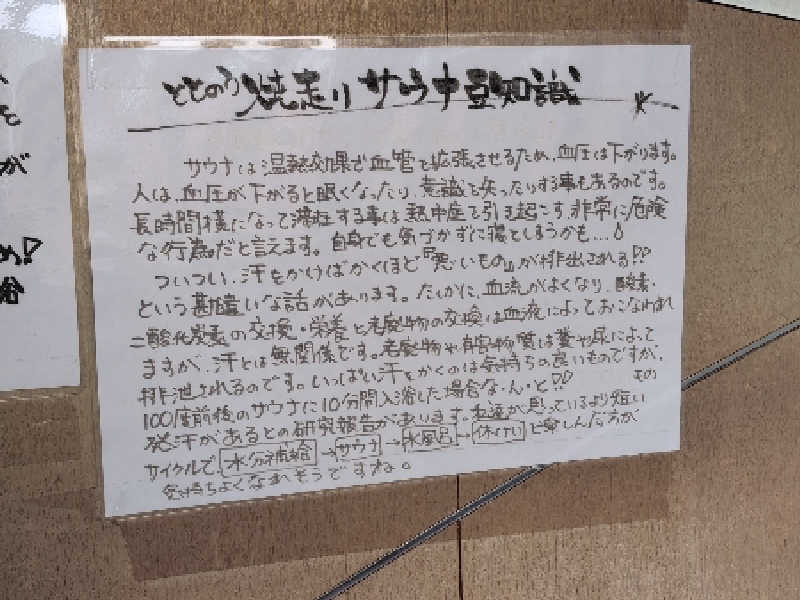 ととのう焼走りサウナ豆知識
サウナは温熱効果で血管を拡張させるため、血圧は下がります。
人は、血圧が下がると眠くなったり、意識を失ったりする事もあるのです。
長時間横になって滞在する事は熱中症を引き起こす、非常に危険
な行為だと言えます。自身でも気づかずに寝てしまうかも…
ついつい、汗をかけばかくほど『悪いもの』が排出される!?
という勘違いな話があります。たしかに、血流がよくなり、酸素・
二酸化炭素の交換・栄養と老廃物の交換は血液によっておこなわれ
ますが、汗とは無関係です。老廃物や有害物質は糞や尿によって
排泄されるのです。いっぱい汗をかくのは気持ちの良いものですが、
100度前後のサウナに10分間入浴した場合な・ん・と!? もの
発汗があるとの研究報告があります。私達が思っているより短い
サイクルで、水分補給→サウナ→水風呂→休けいで楽しんだ方が
気持ちよくなれそうですね。
が
め!